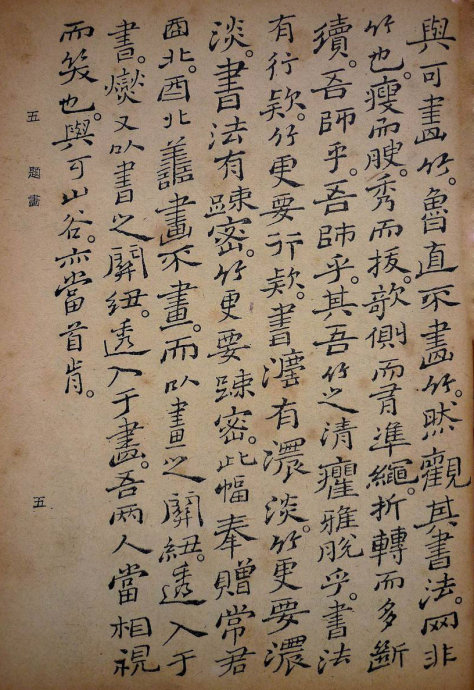 與可畫竹。魯直不畫竹。然觀其書法。网非
竹也。瘦而腴。秀而拔。欹側而有準繩。折轉而多斷
續。吾師乎。吾師乎。其吾竹之清癯雅脫乎。書法
有行款。竹更要行款。書灋有濃淡。竹更要濃
淡。書法有踈密。竹更要踈密。此幅奉贈常君
酉北。酉北善畫不畫。而以畫之關紐。透入于
書。燮又以書之關紐。透入于畫。吾兩人當相視
而笑也。與可山谷。亦當首肯。
五 題畫
五